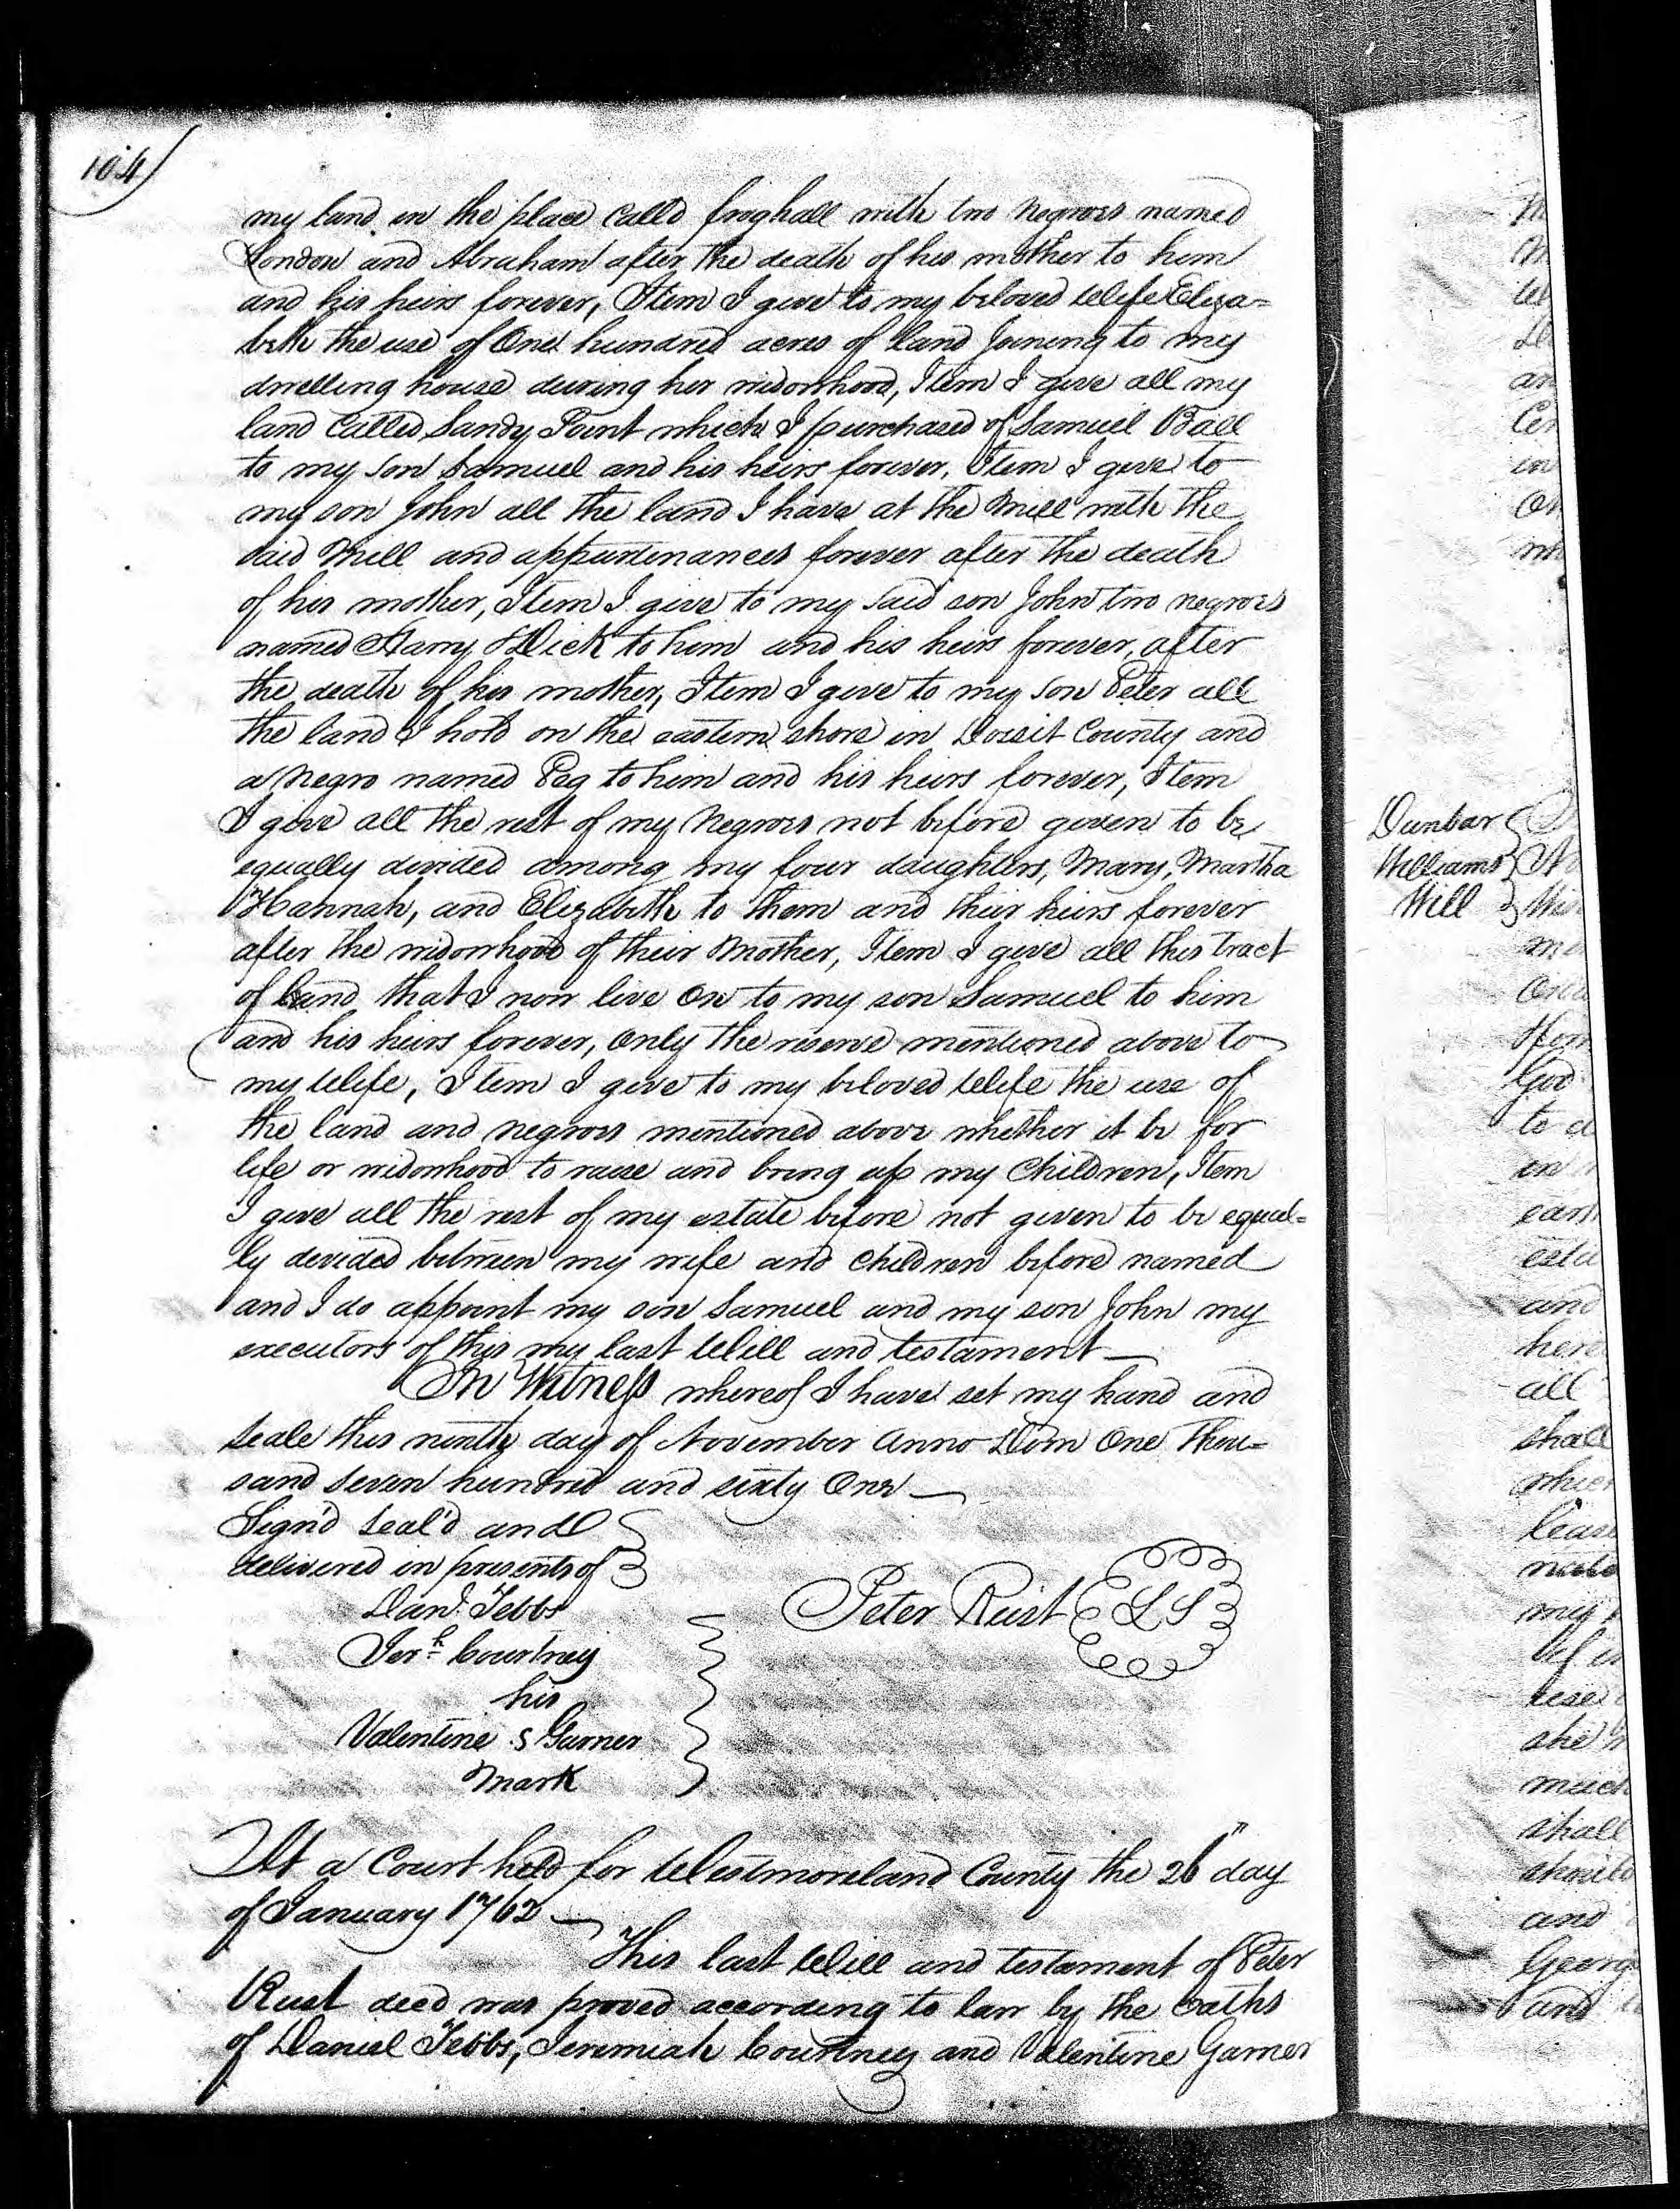 104
my land in the place Call'd froghall with two Negroes named
London and Abraham after the death of his mother to him
and his heirs forever, Item I give to my beloved Wife Eliza=
beth the use of One hundred acres of land Joining to my
dwelling house during her widowhood, Item I give all my
land Called Sandy Point which I purchased of Samuel Ball
to my Son Samuel and his heirs forever, Item I give to
my son John all the land I have at the Mill with the
said Mill and appurtenances forever after the death
of his mother, Item I give to my said son John two negroes
named Harry & Dick to him and his heirs forever, after
the death of his mother, Item I give to my son Peter all
the land I hold on the eastern shore in Dorsit County and
a Negro named Peg to him and his heirs forever, Item
I give all the rest of my Negroes not before given to be
equally divided among my four daughters, Mary, Martha
Hannah, and Elizabeth to them and their heirs forever
after the widowhood of their Mother, Item I give all this tract
of land that I now live On to my son Samuel to him
and his heirs forever, Only the reserve mentioned above to
my Wife, Item I give to my beloved Wife the use of
the land and negroes mentioned above whether it be for
life or widowhood to raise and bring up my Children, Item
I give all the rest of my estate before not given to be equal=
ly devided between my wife and children before named
and I do appoint my son Samuel and my son John my
executors of this my last Will and testament
In Witness whereof I have set my hand and
Seale this ninth day of November Anno Dom One Thou=
sand Seven hundred and sixty One
Sign'd Seal'd and
delivered in presents of
Danl. Tebbs
Jerh. Courtney
his
Valentine S Garner
mark
Peter Rust LS
At a Court held for Westmoreland County the 26" day
of January 1762
This last Will and testament of Peter
Rust decd was proved according to law by the Oaths
of Daniel Tebbs, Jeremiah Courtney and Valentine Garner
Dunbar
Williams
Will